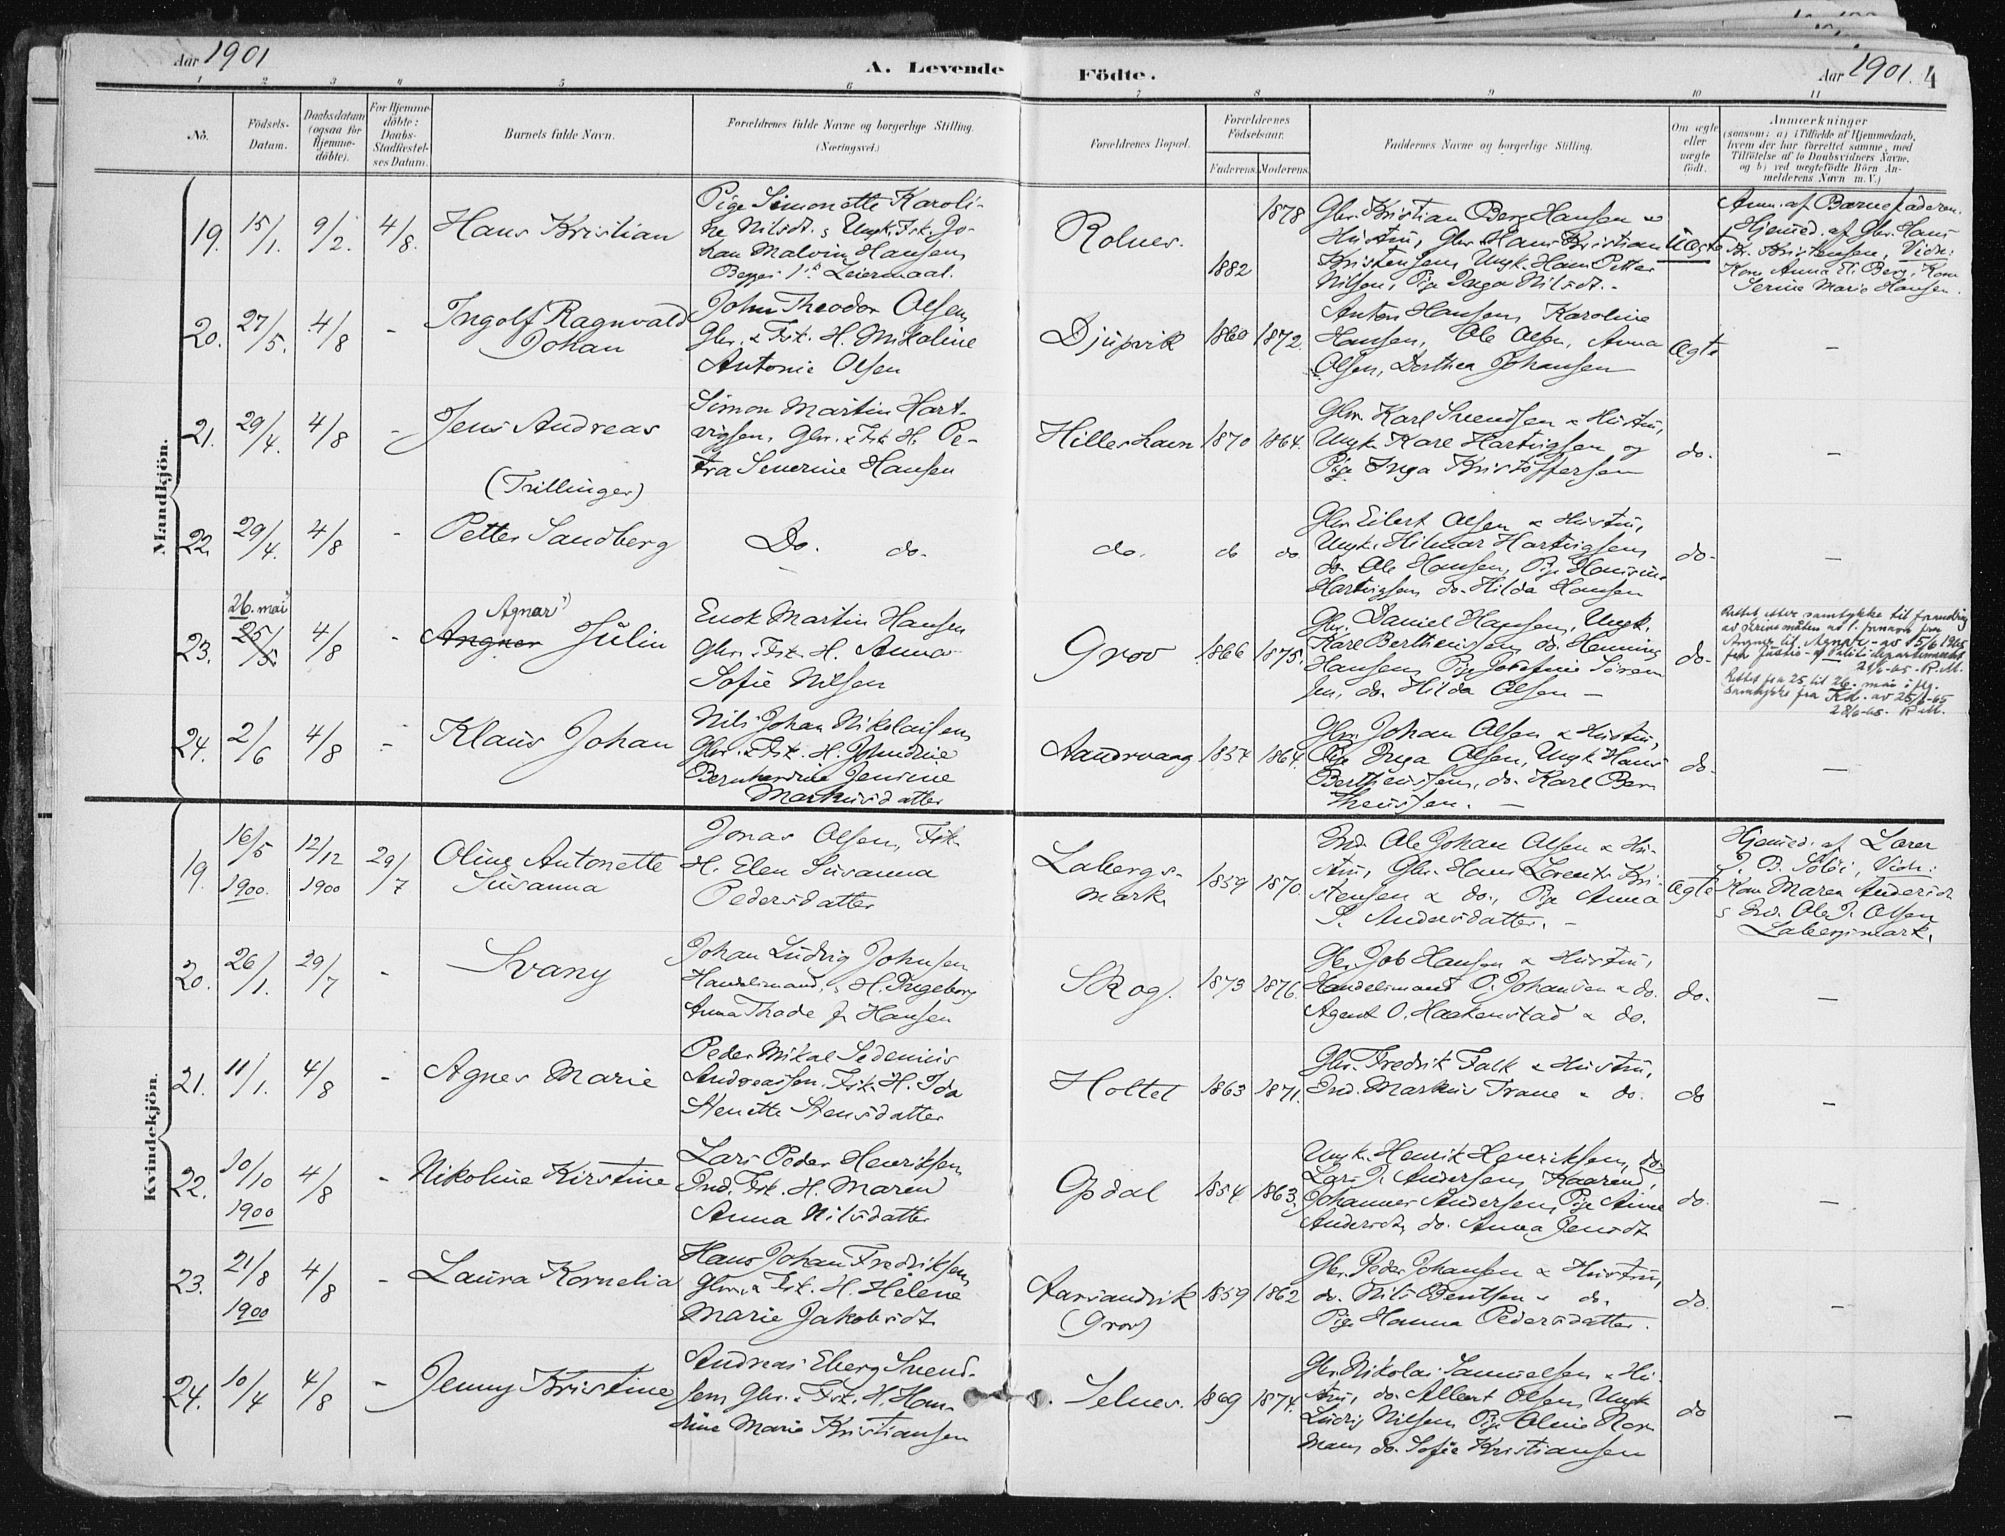 Aar 1901
A. Levende Födte.
Aar 1901. 4
1 2 3 4 5 6 7 8 9 10 11
No.
Födsels-Datum.
Daabsdatum (ogsaa for Hjemme-döbte).
For Hjemme-döbte: Daabs-Stadfæstel-ses Datum.
Barnets fulde Navn.
Forældrenes fulde Navne og borgerlige Stilling. (Næringsvei.)
Forældrenes Bopæl.
Forældrenes Födselsaar.
Faderens. Moderens.
Faddernes Navne og borgerlige Stilling.
Om ægte eller uægte födt.
Anmærkninger
(saasom: a) i Tilfælde af Hjemmedaab,
hvem der har forrettet samme, med
Tilföielse af to Daabsvidners Navne.
og b) ved uægtefödte Börn An-
melderens Navn m. V.)
Mandkjön.
19. 15/1. 9/2. 4/8. Hans Kristian
Pige Simonette Karoli-
ne Nilsdt. & Ungk. Fsk. Jo-
han Malvin Hansen
Begges 1ste Leiermaal.
Rolnes. 1882 1878
Gbr. Kristian Berg Hansen &
Hustru, Gbr. Hans Kristian
Kristensen, Ungk. Hans Petter
Nilsen, Pige Inga Nilsdt. -
Uægte
Anm. af Barnefaderen.
Hjemmed. af Gbr. Hans
Kr. Kristensen, Vidn:
Kone Anna E. Berg, Kone
Serine Marie Hansen.
20. 27/5. 4/8 - Ingolf Ragnvald
Johan
John Theodor Olsen
Gbr. & Fsk. H. Nikoline
Antonie Olsen
Djupvik 1860 1872.
Anton Hansen, Karoline
Hansen, Ole Olsen, Anna
Olsen, Dorthea Johansen
Ægte -
21. 29/4. 4/8 - Jens Andreas
(Trillinger)
Simon Martin Hart-
vigsen, Gbr. & Fsk. H. Pe-
tra Severine Hansen
Hilleshavn 1870 1864.
Gbr. Karl Svendsen & Hustru,
Ungk. Kare Hartvigsen og
Pige Inga Kristoffersen
do. -
22. 29/4. 4/8 - Petter Sandberg
Do. do. do. do do.
Gbr. Eilert Olsen & Hustru,
Ungk. Hilmar Hartvigsen,
do. Ole Hansen, Pige Hansine
Hartvigsen do. Hilda Hansen
do. -
23. 26. mai 25/5 4/8 - Agnar Angner Julin
Enok Martin Hansen
Gbr. & Fsk. H. Anna
Sofie Nilsen
Grov 1866 1875.
Gbr. Daniel Hansen, Ungk.
Karl Bertheussen, do. Henning
Hansen, Pige Josefine Sören-
sen, do. Hilda Olsen -
do.
Rettet etter samtykke til forandring
av skrivemåten av 1. fornavn fra
Angner til Agnar - av 15/6 1965
fra Justis- og Politidepartementet
21/6-65. R.M.
Rettet fra 25 til 26. mai i flg.
samtykke fra K.M. av 25/6-65
28/6-65. R.M.
24. 2/6 4/8 - Klaus Johan
Nils Johan Nikolaisen
Gbr. & Fsk. H. Johndine
Bernhardine Jensine
Markusdatter
Aandervaag 1857 1864.
Gbr. Johan Olsen & Hustru,
Pige Inga Olsen, Ungk. Hans
Bertheussen, do. Karl Ber-
theussen. -
do. -
Kvindekjön.
19. 16/5 1900. 12/12 1900 29/7 Oline Antonette
Susanna
Jonas Olsen, Fsk.
H. Elen Susanna
Pedersdatter
Labergs-
mark 1859 1870.
Ind. Ole Johan Olsen & Hu-
stru, Gbr. Hans Lorents Kri-
stensen & do., Pige Anna
S. Andersdatter. -
Ægte
Hjemmed. af Lærer
P. B. Solöi, Vidn:
Kone Maren Andersdt.
& Ind. Ole J. Olsen
Labergsmark.
20. 26/1. 29/7 - Svany
Johan Ludvig Johnsen
Handelsmand, & H. Ingeborg
Anna Thode f. Hansen
Skog. 1873 1876.
Gbr. Job Hansen & Hustru,
Handelsmand O. Johansen & do.
Agent O. Haakenstad & do.
do. -
21. 11/1. 4/8 - Agnes Marie
Peder Mikal Sedenius
Andreassen, Fsk. H. Ida
Henette Stensdatter
Holtet 1863 1871.
Gbr. Fredrik Falk & Hustru,
Ind. Markus Trane & do.
do -
22. 10/10 1900 4/8 - Nikoline Kirstine
Lars Peder Henriksen,
Ind. Fsk. H. Maren
Anna Nilsdatter
Gjsdal 1854 1863.
Ungk. Henrik Henriksen, do.
Lars J. Andersen, Kaarend,
Johannes Andersen, Pige Anne
Andersdt., do. Anna Jensdt.
do. -
23. 21/8 1900 4/8 - Laura Kornelia
Hans Johan Fredriksen,
Gbr. & Fsk. H. Helene
Marie Jakobsdt.
Aarsandvik
(Grov) 1859 1862
Gbr. Peder Johansen & Hustru,
do. Nils Bentsen & do.
Pige Hanna Pedersdatter.
do. -
24. 10/4 4/8 - Jenny Kristine
Andreas Eberg Svend-
sen Gbr. & Fsk. H. Han-
sine Marie Kristiansen
Selnes. 1869 1874.
Gbr. Nikolai Samuelsen & Hu-
stru, do. Albert Olsen, Ungk.
Ludvig Nilsen, Pige Oline Nor-
mann, do. Sofie Kristiansen
do -